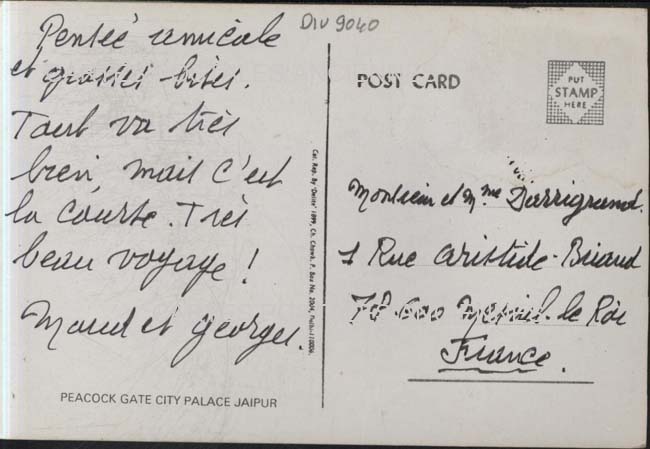 Div 9040
Pensée amicale
et grosses bises.
Tout va très
bien mais c'est
la course. Très
beau voyage !
Maud et georges.
PEACOCK GATE CITY PALACE JAIPUR
Cat. Rep. By 'Delite' 1899, Ch. Chowk, P. Box No. 2014, Delhi-110006.
POST CARD
PUT
STAMP
HERE
Monsieur et Mme Darrigrand.
1 Rue Aristide-Briand
78-600 Mesnil-le Roi
France.